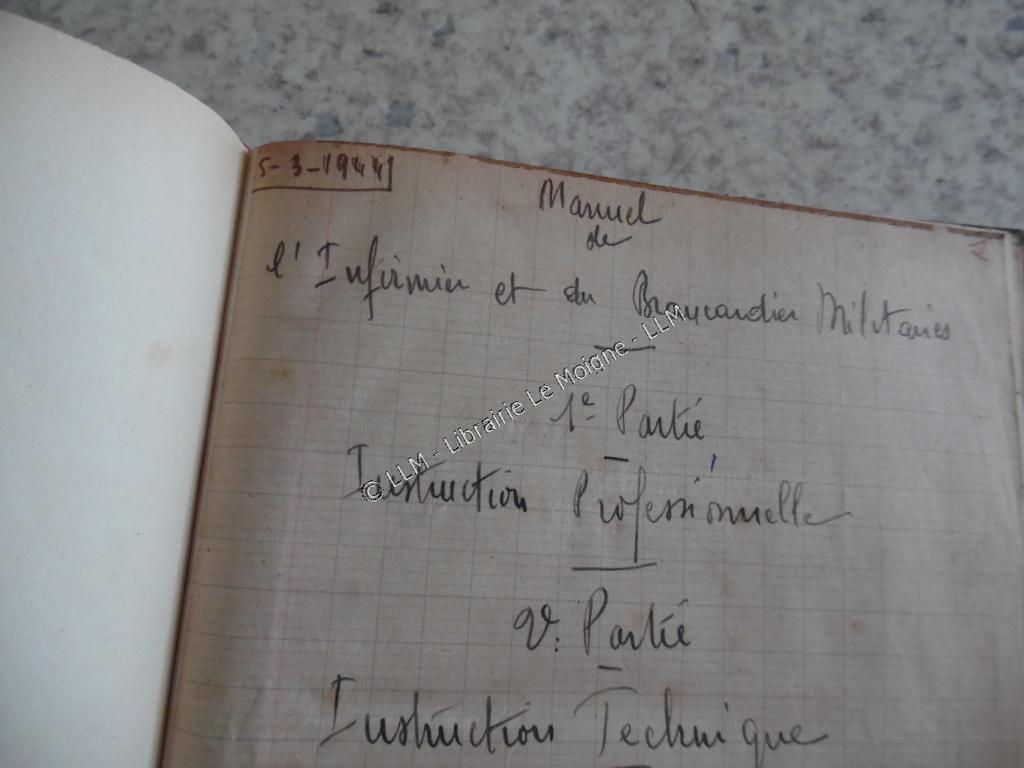 5-3-1944
Manuel
de
l'Infirmier et du Brancardier Militaires
1e Partie
Instruction Professionnelle
2e. Partie
Instruction Technique
© LLM - Librairie Le Moigne - LLM